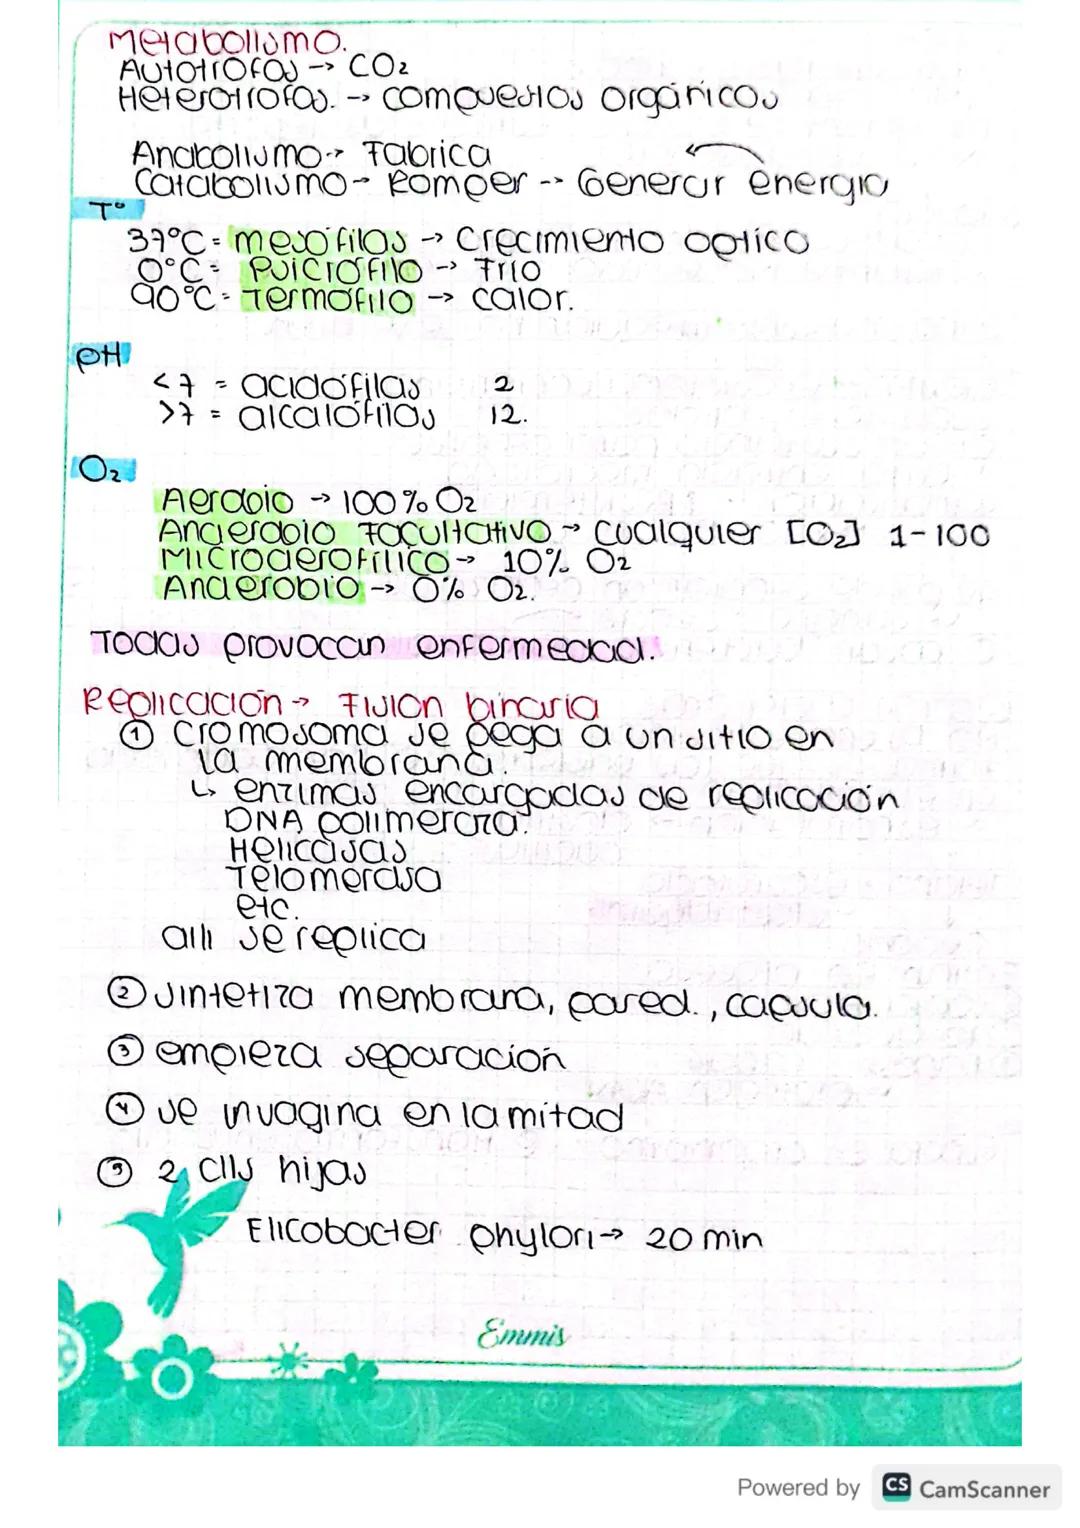 Metabolismo.
Autotrofas → CO2
Heterotrofas. → compuestos orgánicos
Anabolismo → Fabrica
Catabolismo → Romper → Generar energia
T°
37°C = mesofilas → Crecimiento optico
0°C = Psicrófilo → Frio
90°C = Termófilo → calor.
pH
<7 = acidófilas 2
>7 = alcalófilas 12.
O2
Aerobio → 100% O2
Anaerobio Facultativo → Cualquier [O2] 1-100
Microaerofilico → 10% O2
Anaerobio → 0% O2.
Todas provocan enfermedad.
Replicación → Fision binaria
① Cromosoma se pega a un sitio en
la membrana.
↳ enzimas encargadas de replicación
DNA polimeraza.
Helicasas
Telomerasa
etc.
alli se replica
② sintetiza membrana, pared., capsula.
③ empieza separación
④ se invagina en la mitad
③ 2 Clls hijas
Elicobacter phylori → 20 min
Emmis
Powered by CS CamScanner